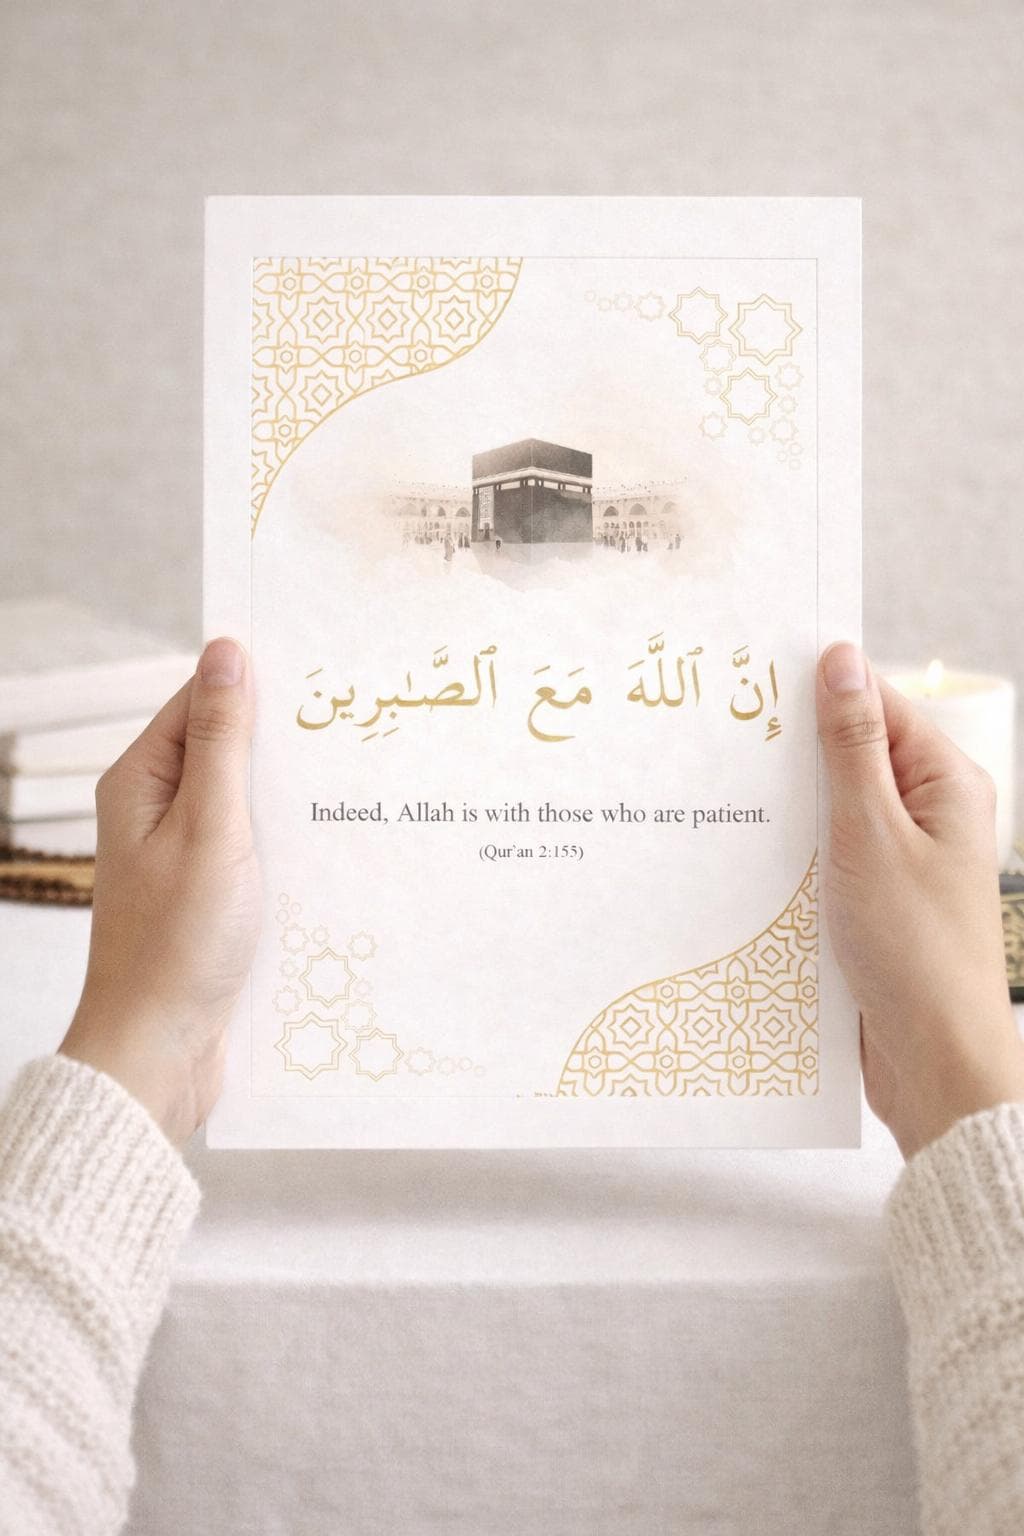 إِنَّ ٱللَّهَ مَعَ ٱلصَّـٰبِرِينَ
Indeed, Allah is with those who are patient.
(Qur`an 2:155)